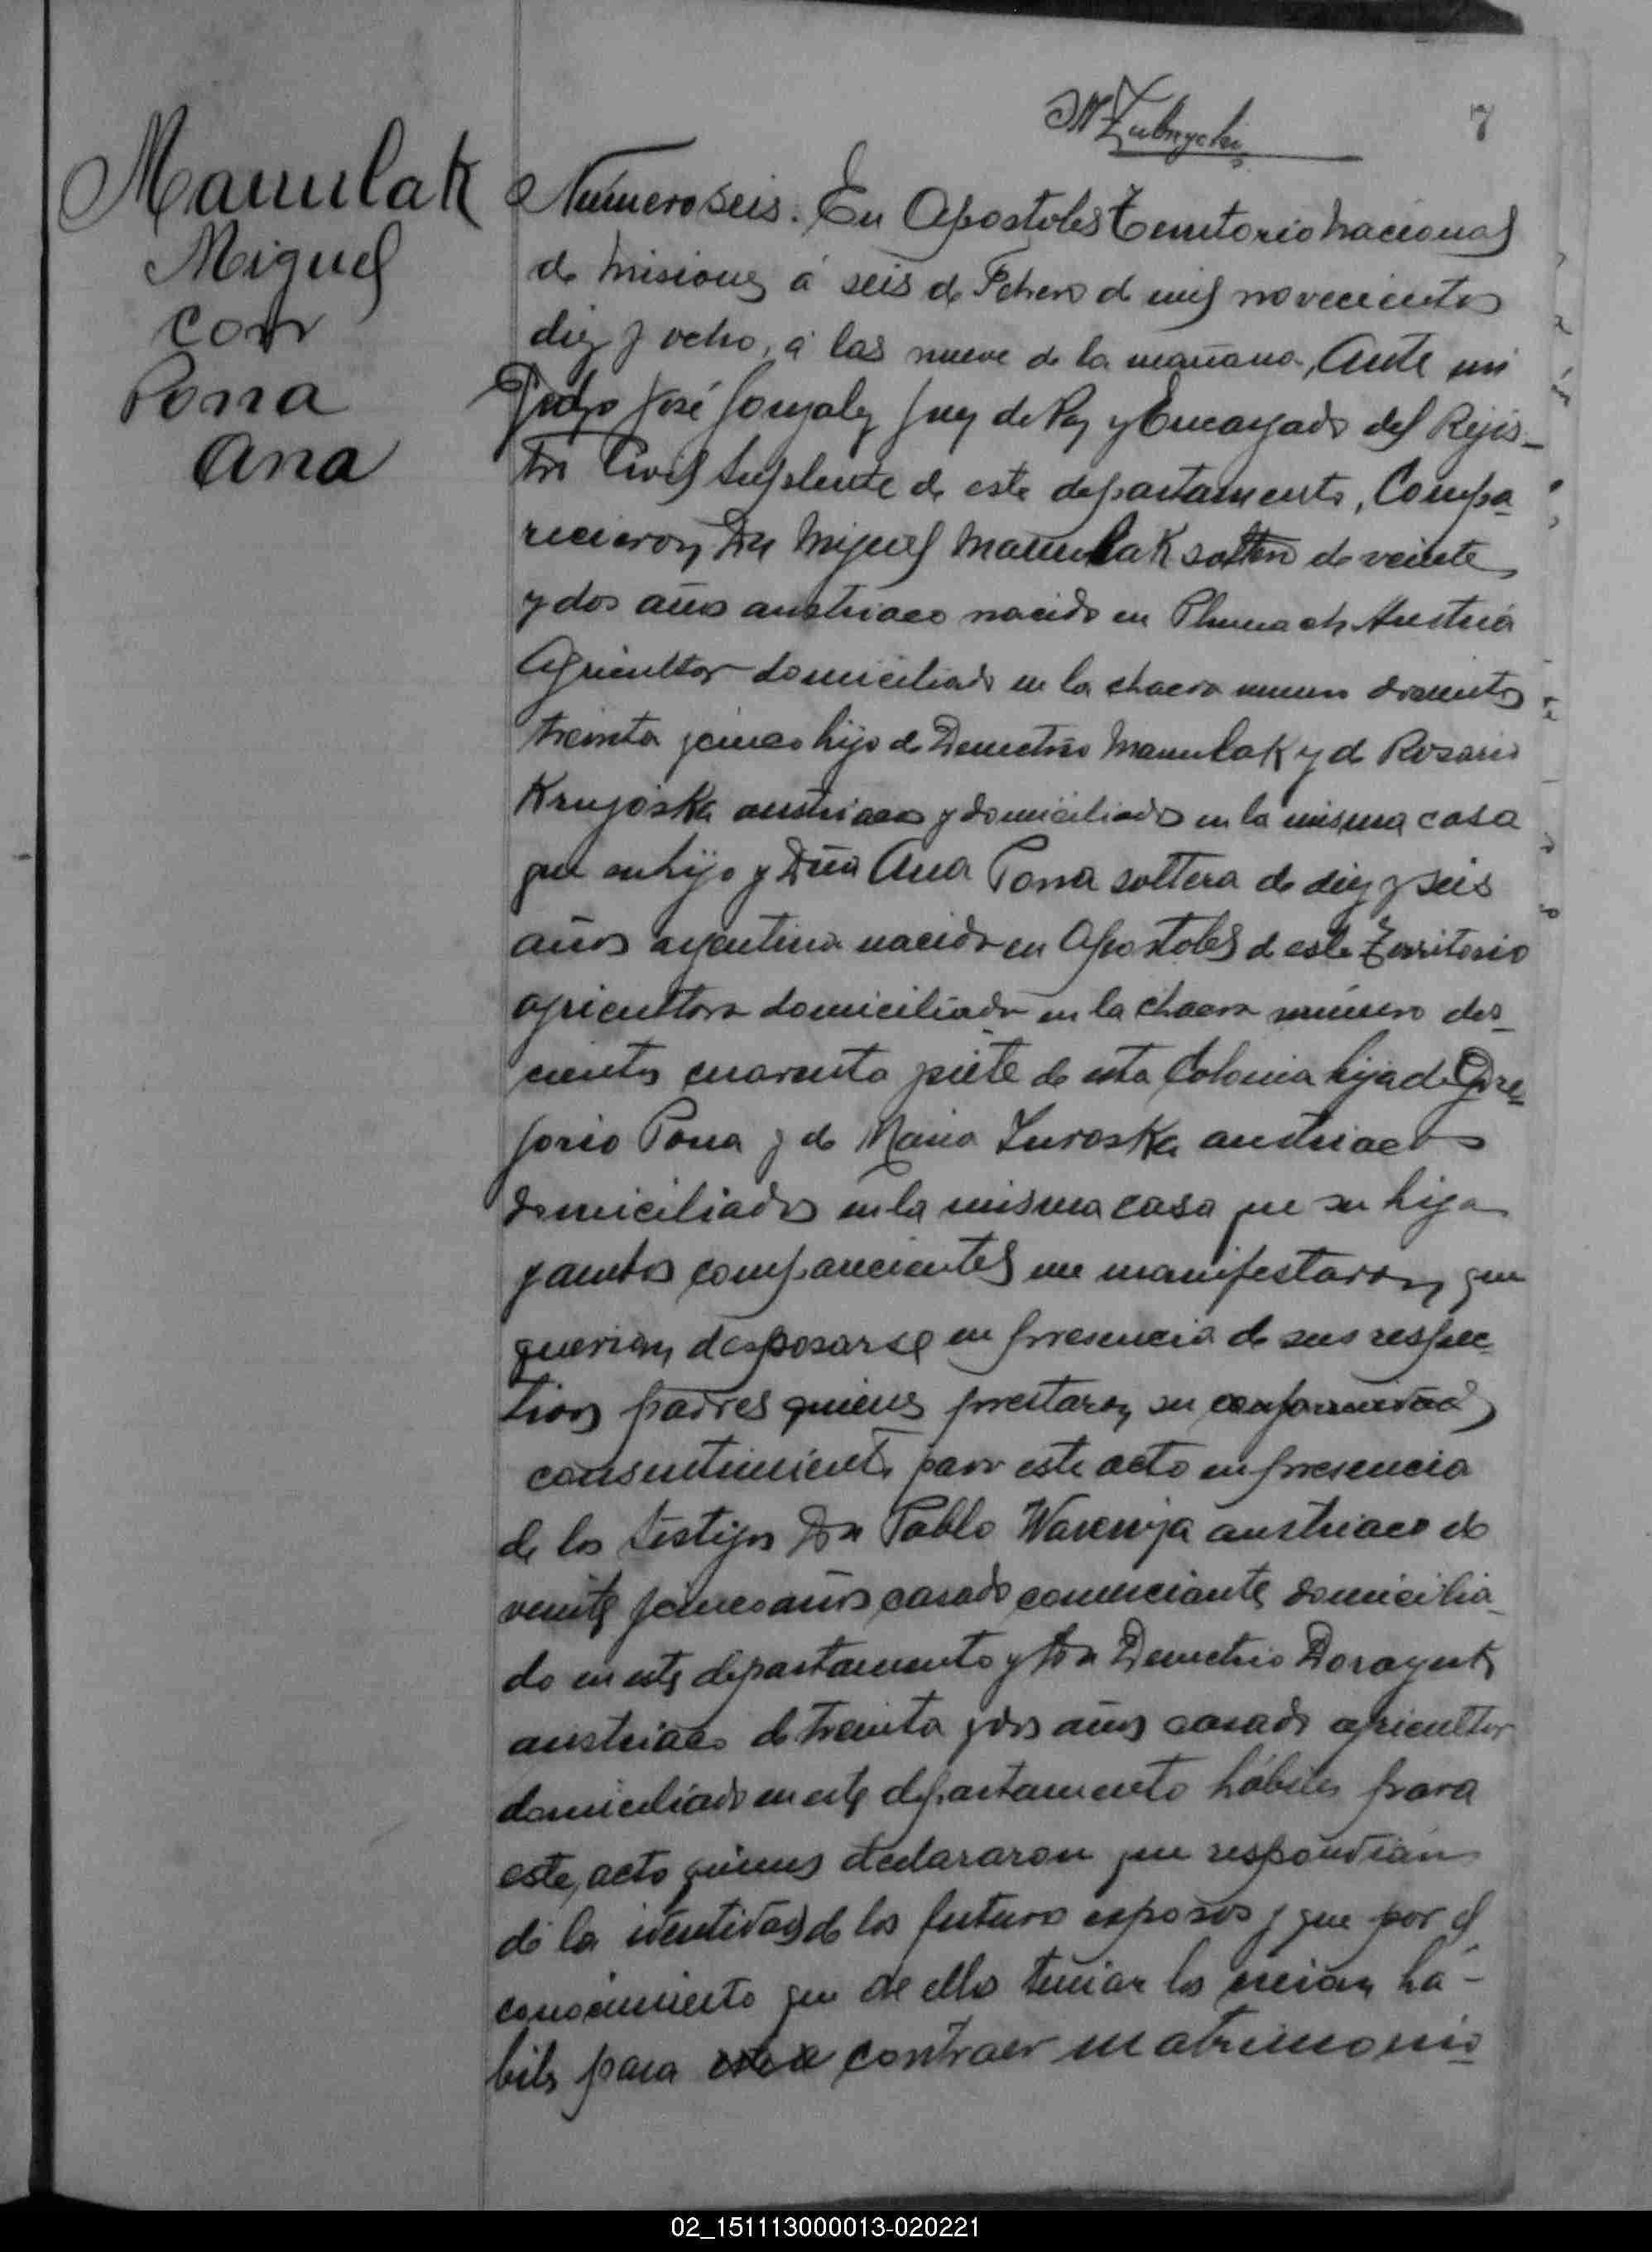 7
Manulak
Miguel
con
Pona
Ana
Número seis. En Apostoles Territorio Nacional
de Misiones á seis de Febrero de mil novecientos
diez y ocho, á las nueve de la mañana, Ante mi
José Gonzalez Juez de Paz y Encargado del Rejis-
tro Civil Suplente de este departamento, Compa-
recieron Dn Miguel Manulak soltero de veinte
y dos años austriaco nacido en Austria
Agricultor domiciliado en la chacra numero doscientos
treinta y cinco hijo de Demetrio Manulak y de Rosario
austriacos y domiciliados en la misma casa
que su hijo y Dña Ana Pona soltera de diez y seis
años argentina nacida en Apostoles de este Territorio
agricultora domiciliada en la chacra número dos-
cientos cuarenta y siete de esta Colonia hija de Gre-
gorio Pona y de Maria Zuroska austriacos
domiciliados en la misma casa que su hija
y ambos comparecientes me manifestaron que
querian desposarse en presencia de sus respec-
tivos padres quienes prestaron su conformidad y
consentimiento para este acto en presencia
de los testigos Dn Pablo austriaco de
veinte y cinco años casado comerciante domicilia-
do en este departamento y Dn Demetrio
austriaco de treinta y dos años casado agricultor
domiciliado en este departamento hábiles para
este acto quienes declararon que respondian
de la identidad de los futuro esposos y que por el
conocimiento que de ello tenian los creian há-
biles para contraer matrimonio
02_151113000013-020221